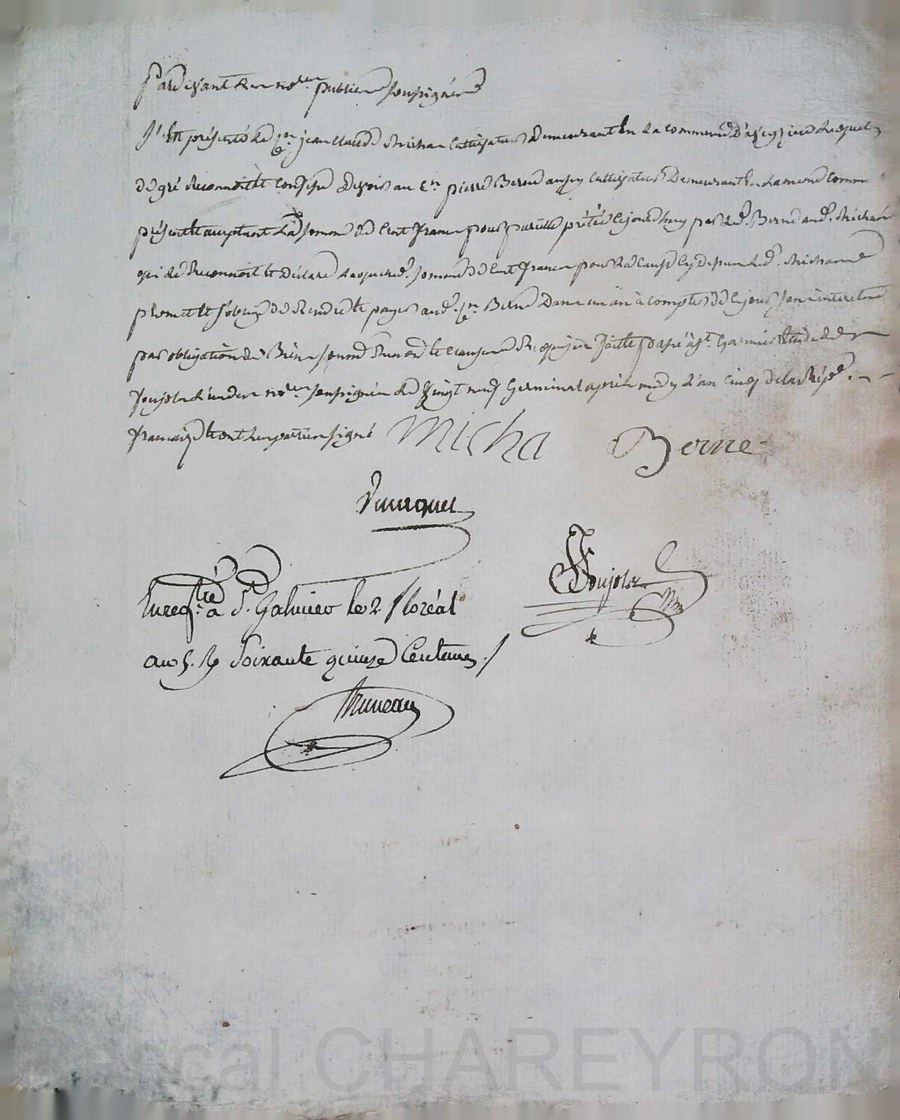 Pardevant les no.res publics soussignés
s'est présenté le c.en jean claude Micha Cultivateur Demeurant en la commune lequel
de gré Reconnoit et Confesse devoir au C.en pierre Berne aussy Cultivateur Demeurant en la meme Comm.
présent et acceptant La somme de Cent francs pour pareille prêtée ce jourd'huy par led. Berne aud. Micha
qui le Reconnoit et Déclare Laquelle somme de Cent francs pour la cause cy dessus led. Micha
promet et s'oblige de Rendre et payer aud. C.en Berne Dans un an à compter de ce jour sans interet
par obligation de Biens fait et passé à S.t Galmier Etude de
Foujols l'un des no.res soussignés le vingt neuf Germinal après midy l'an Cinq de la Rép.e
française et ont les parties signé Micha Berne
Foujols
Enreg.tré à S.t Galmier le 2 floréal
an 5. R. Soixante quinze Centimes
Bruneau
Pascal CHAREYRON